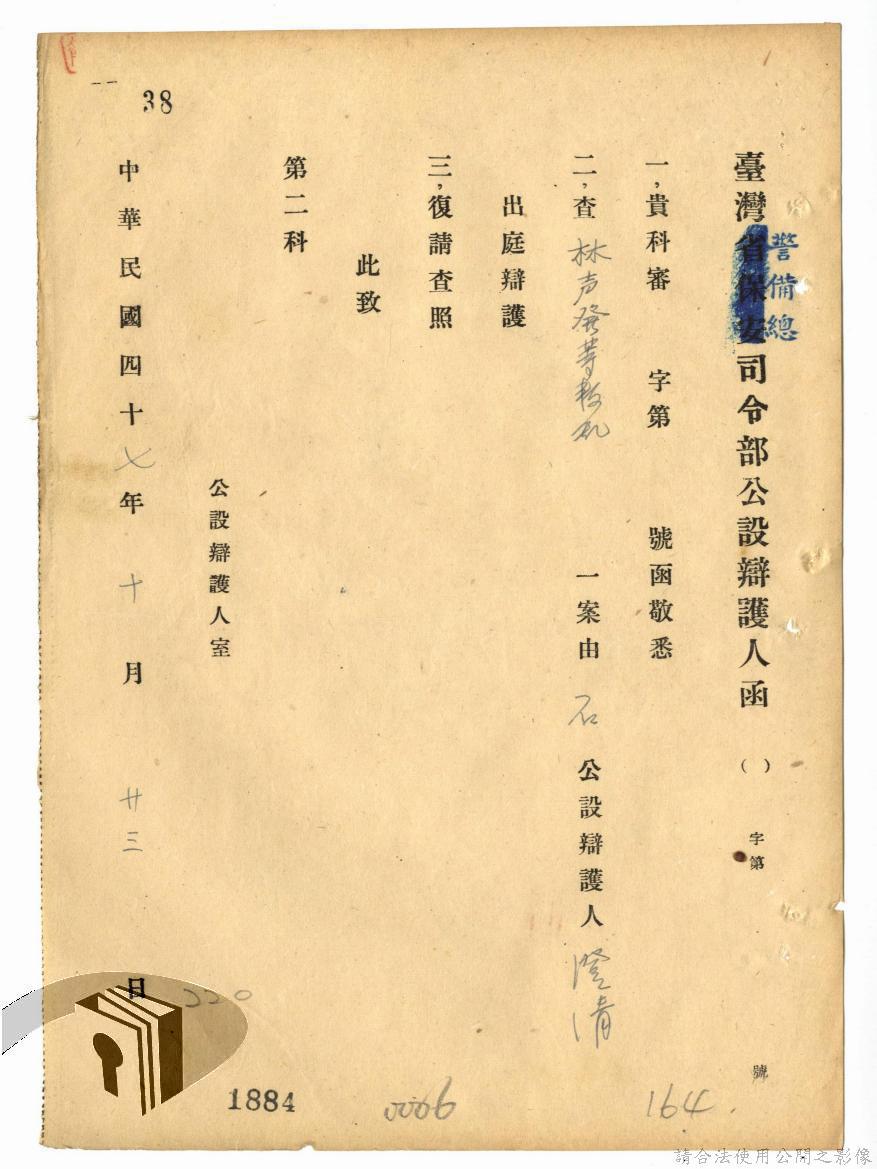 臺灣省保安司令部公設辯護人函（ ）字第 號
警備總
一，貴科審 字第 號函敬悉
二，查林声發等叛亂 一案由 石 公設辯護人 澄清
出庭辯護
三，復請查照
此致
第二科
公設辯護人室
中華民國四十七年十月廿三日
38
220
1884
0066
164
請合法使用公開之影像